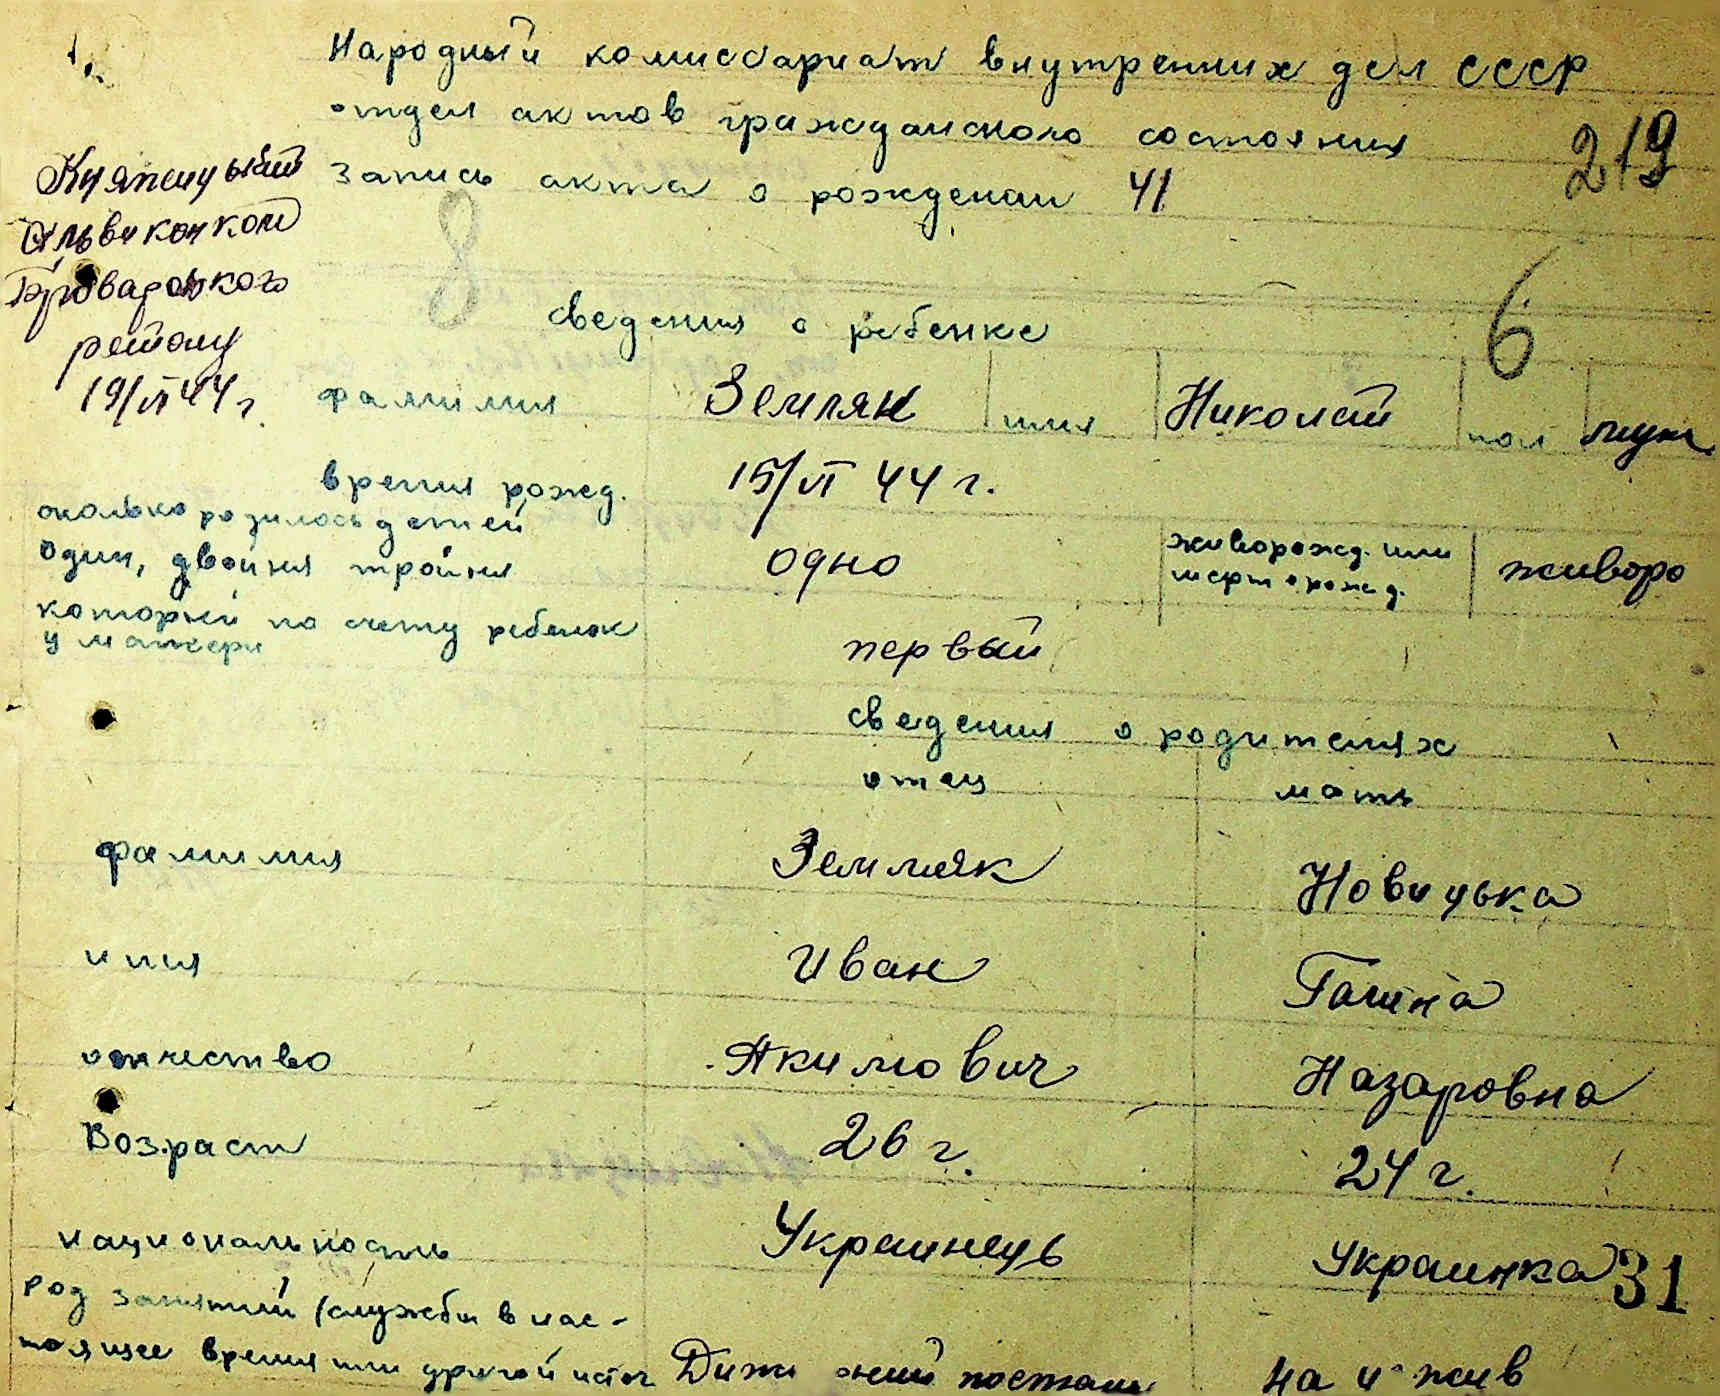 Народный комиссариат внутренних дел СССР
отдел актов гражданского состояния
219
запись акта о рождении 41
Княжицький
Броварського
району
19/VI 44 г.
8
6
сведения о ребенке
фамилия Земляк имя Николай пол муж
время рожд. 15/VI 44 г.
сколько родилось детей
один, двойня тройня одно живорожд. или мертворожд. живоро
который по счету ребенок
у матери первый
сведения о родителях
отец мать
фамилия Земляк Новицька
имя Иван Галина
отчество Акимович Назаровна
Возраст 26 г. 24 г.
национальность Украинець Украинка
31
род занятий (службы в нас-
тоящее время или другой источ на и жив